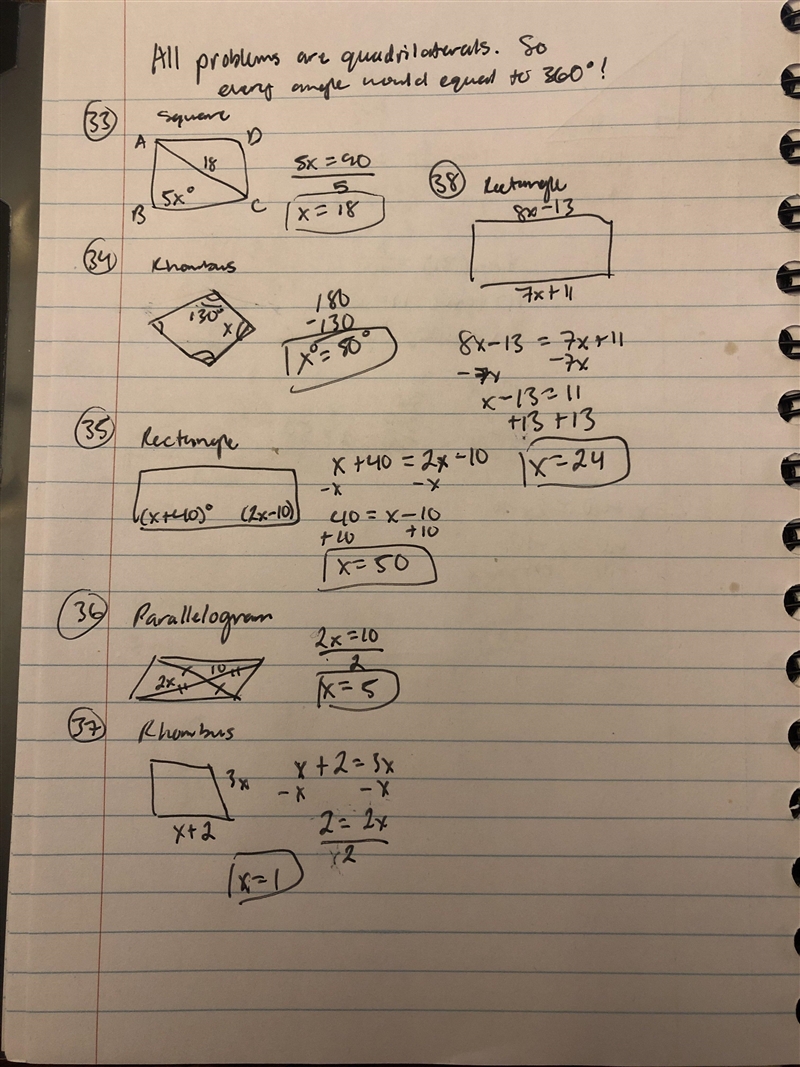 All problems are quadrilaterals. So
every angle would equal to 360°!
33 Square
A D
18
5x°
B C
5x = 90
5
x = 18
34 Rhombus
130°
x
180
-130
x° = 50°
35 Rectangle
(x+40)° (2x-10)
x + 40 = 2x - 10
-x -x
40 = x - 10
+10 +10
x = 50
36 Parallelogram
10
2x
2x = 10
2
x = 5
37 Rhombus
3x
x + 2
x + 2 = 3x
-x -x
2 = 2x
2
x = 1
38 Rectangle
8x - 13
7x + 11
8x - 13 = 7x + 11
-7x -7x
x - 13 = 11
+13 +13
x = 24